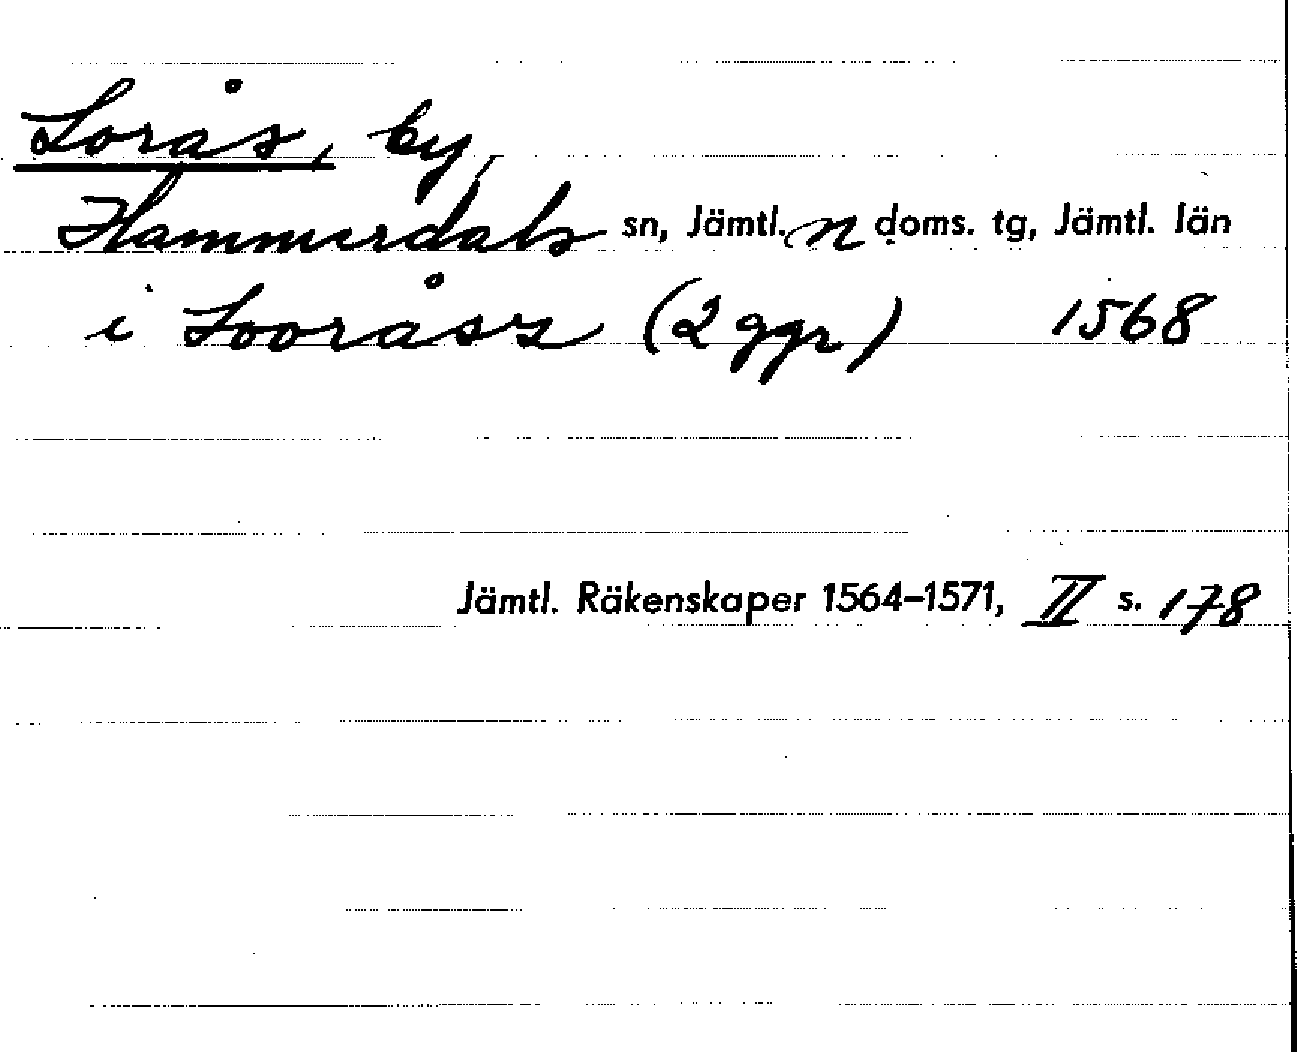 Lorås, by,
Hammerdals sn, Jämtl. n doms. tg, Jämtl. län
i Looråsz (2 ggr) 1568
Jämtl. Räkenskaper 1564–1571, II s. 178